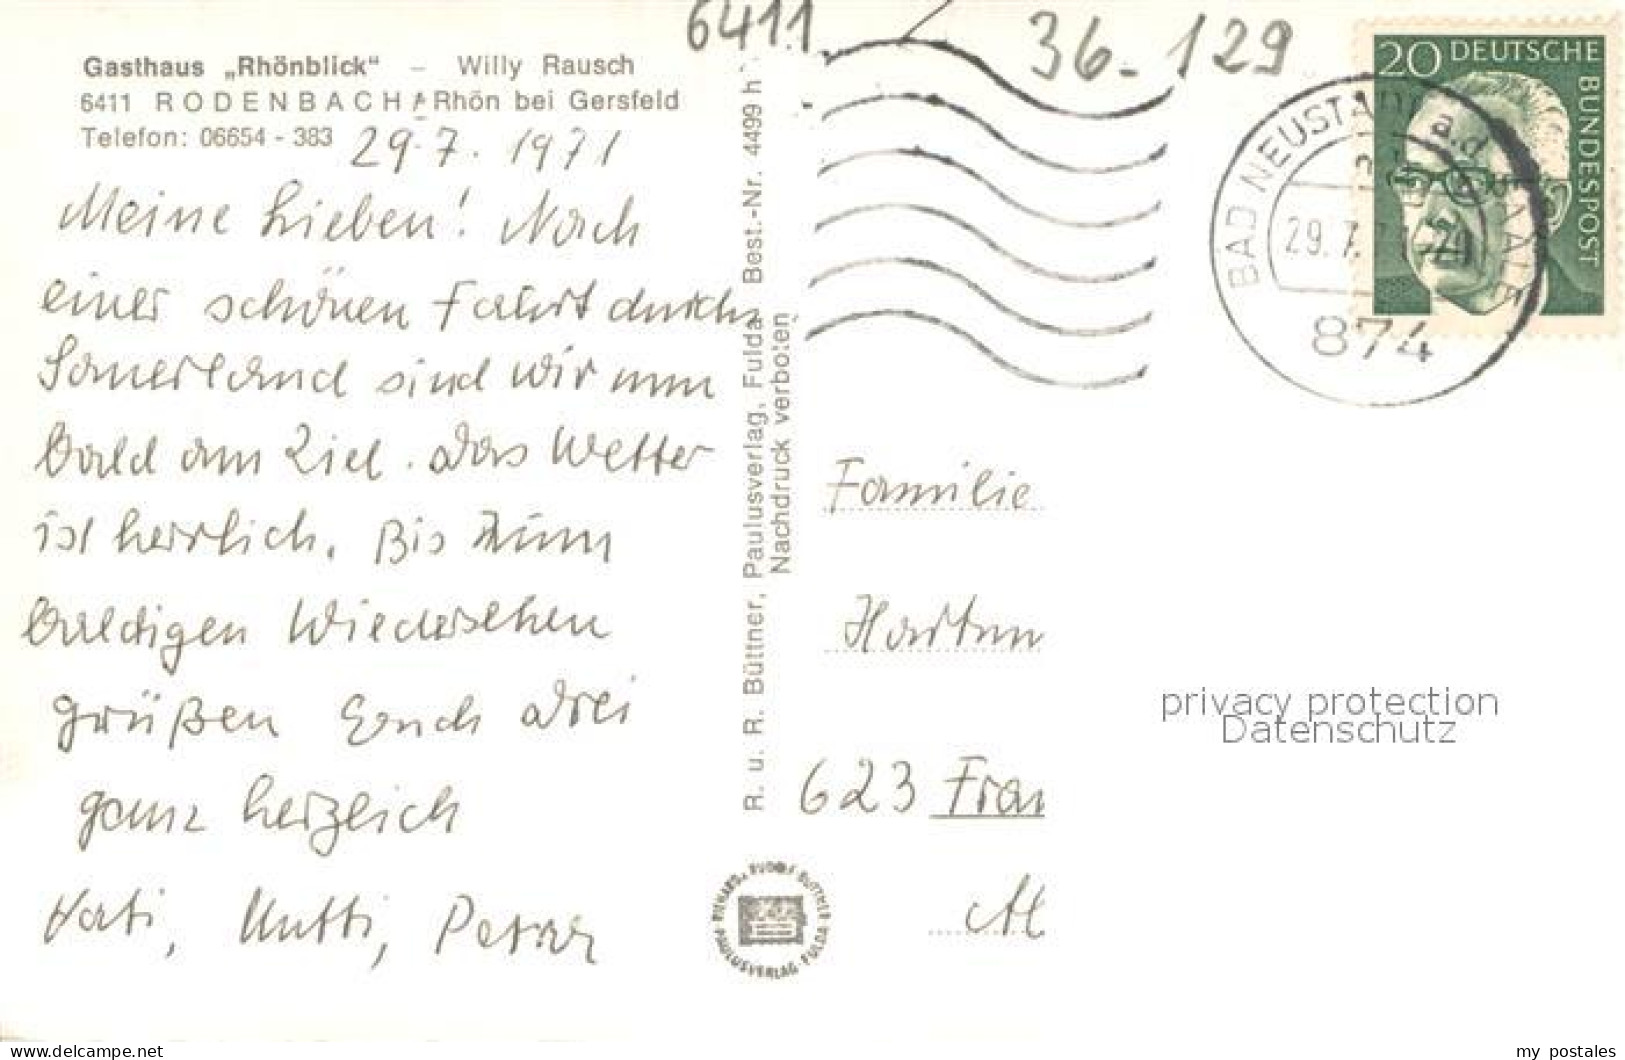 6411
36-129
Gasthaus „Rhönblick“ – Willy Rausch
6411 RODENBACH / Rhön bei Gersfeld
Telefon: 06654 - 383
29.7.1971
Meine Lieben! Nach
einer schönen Fahrt durchs
Sauerland sind wir nun
bald am Ziel. Das Wetter
ist herrlich. Bis zum
baldigen Wiedersehen
grüßen Euch drei
ganz herzlich
Kati, Mutti, Peter
R. u. R. Büttner, Paulusverlag, Fulda Best.-Nr. 4499 h
Nachdruck verboten
RICHARD u. RUDOLF BÜTTNER
PAULUSVERLAG · FULDA
20 DEUTSCHE
BUNDESPOST
BAD NEUSTADT a.d. SAALE
29.7.
874
Familie
Hartun
623 Fran
privacy protection
Datenschutz
www.delcampe.net
my_postales